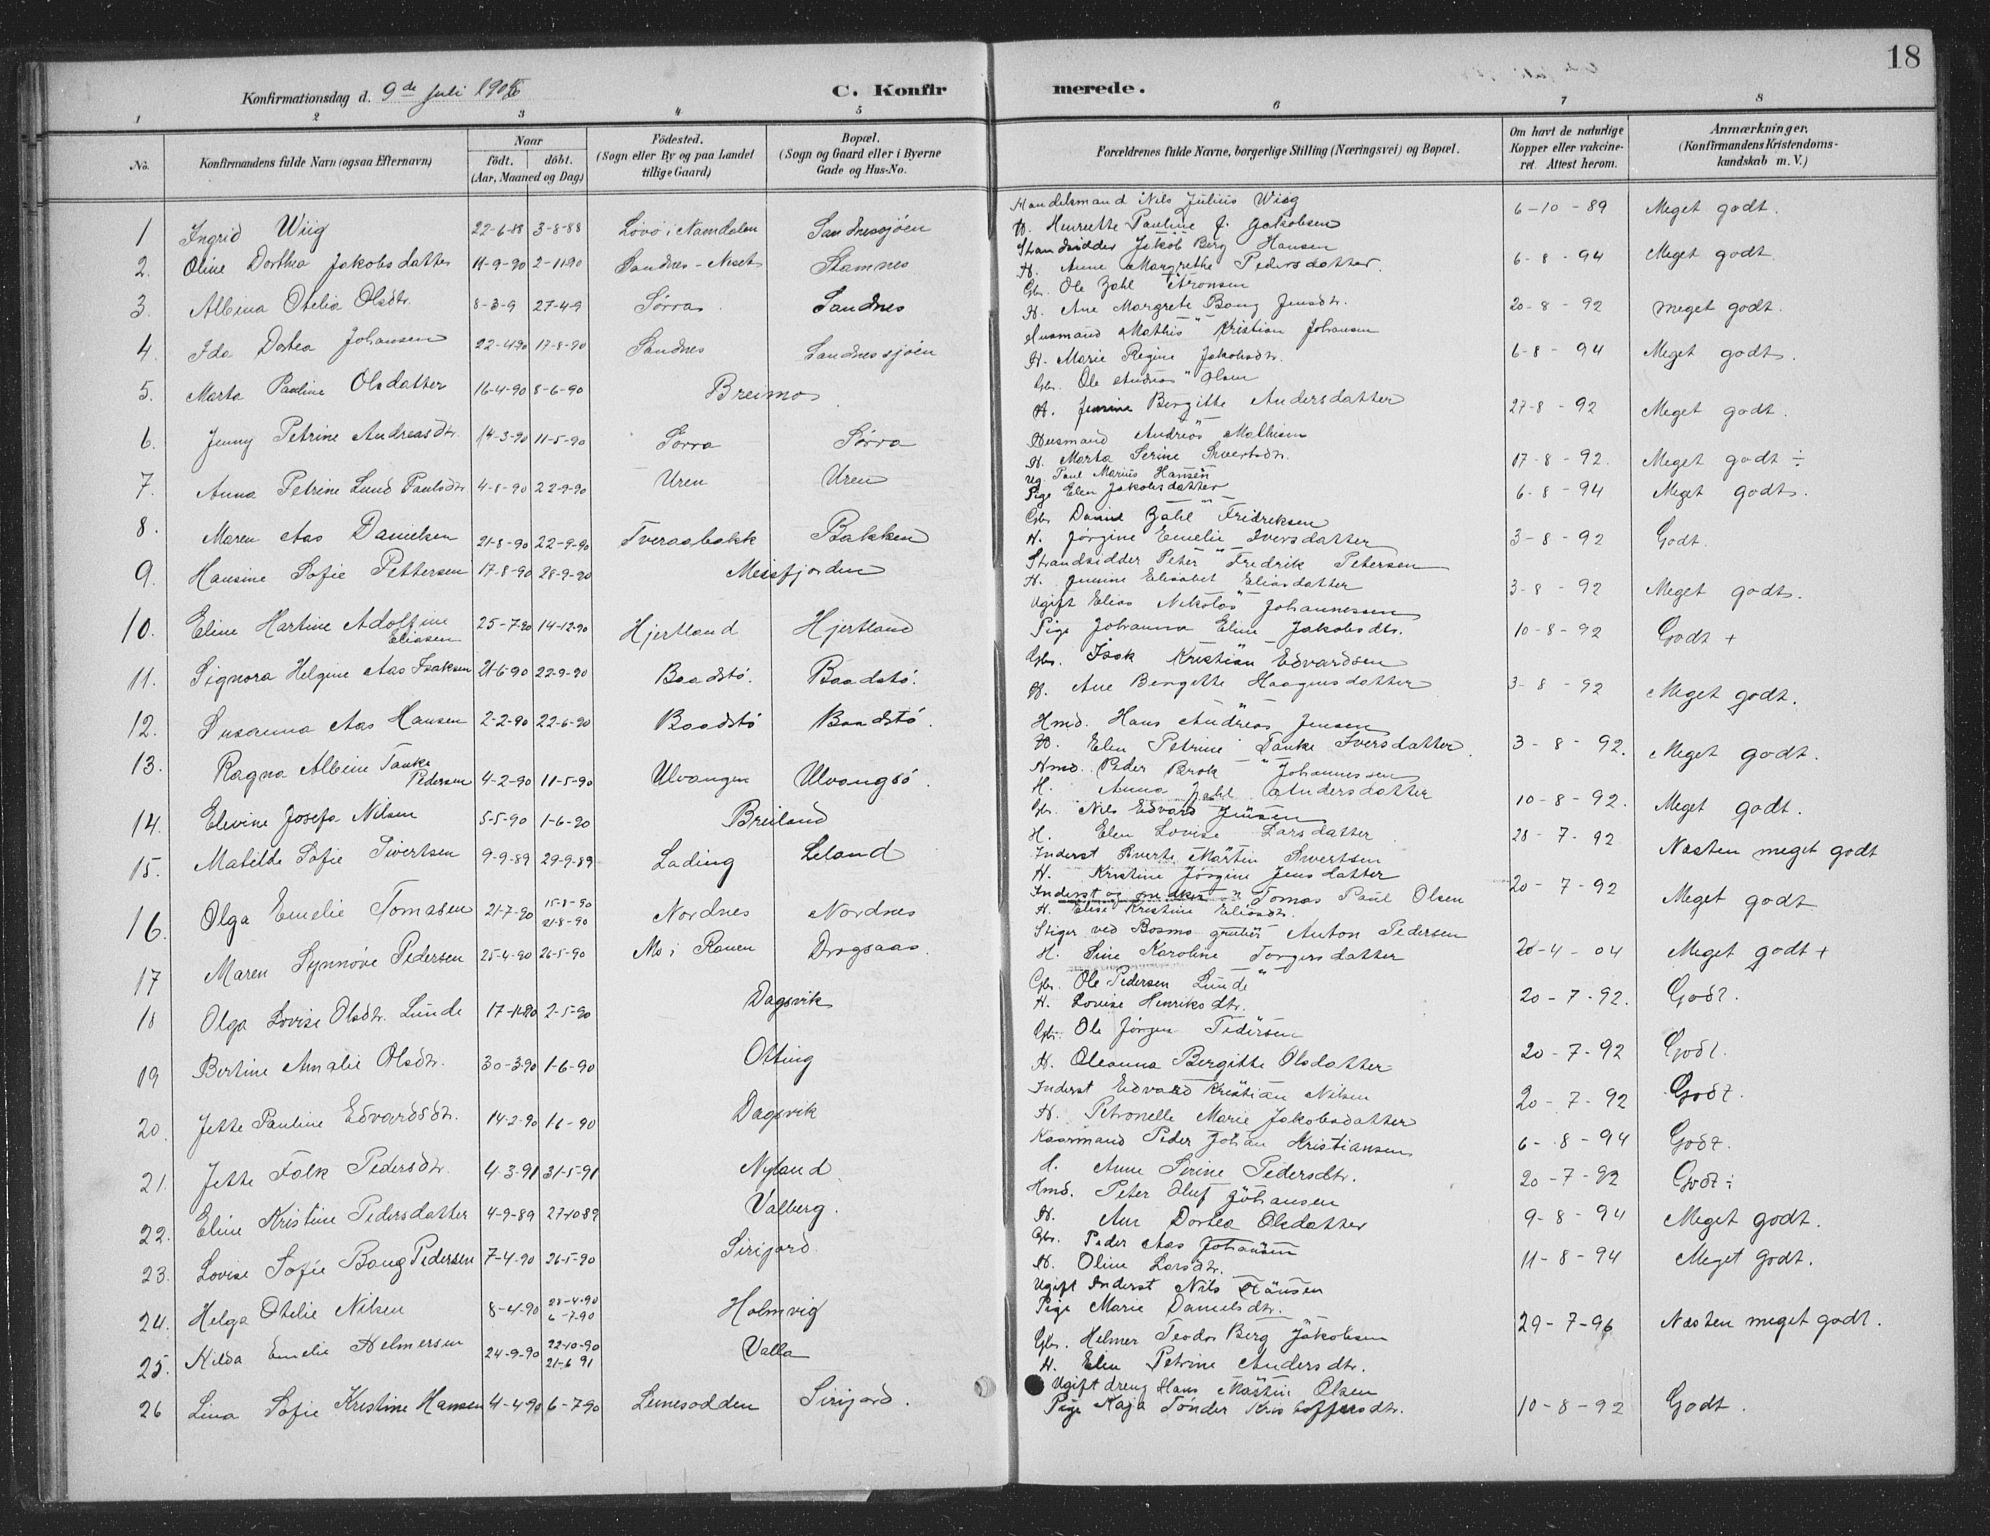 18
Konfirmationsdag d. 9de Juli 190
C. Konfir merede.
1 2 3 4 5 6 7 8
No. Konfirmandens fulde Navn (ogsaa Efternavn) Naar født. døbt. (Aar, Maaned og Dag) Fødested. (Sogn eller By og paa Landet tillige Gaard) Bopæl. (Sogn og Gaard eller i Byerne Gade og Hus-No. Forældrenes fulde Navne, borgerlige Stilling (Næringsvei) og Bopæl. Om havt de naturlige Kopper eller vakcineret. Attest herom. Anmærkninger. (Konfirmandens Kristendomskundskab m. V.)
Handelsmand Nils Julius Wiig
1 Ingrid Wiig 22-6-88 3-8-88 Lovø i Namdalen Sandnessjøen H. Henriette Pauline J. Jakobsen 6-10-89 Meget godt.
Strandsidder Jakob Berg Hansen
2. Oline Dorthea Jakobsdatter 11-9-90 2-11-90 Sandnes-Neset Stamnes H. Anne Margrethe Pedersdatter. 6-8-94 Meget godt.
Gbr. Ole Zahl Aronsen
3. Albina Otelia Olsdtr. 8-3-9 27-4-9 Sørra Sandnes H. Ane Margrete Bang Jensdtr. 20-8-92 meget godt.
Husmand Mathis Kristian Johansen
4. Ida Dortea Johansen 22-4-90 17-8-90 Sandnes Sandnessjøen H. Marie Regine Jakobsdtr. 6-8-94 Meget godt.
Gbr. Ole Andreas Olsen
5. Marta Pauline Olsdatter 16-4-90 8-6-90 Breimo H. Jensine Bergitte Andersdatter 27-8-92 Meget godt.
Husmand Andreas Mathisen
6. Jenny Petrine Andreasdtr. 14-3-90 11-5-90 Sørra Sørra H. Marta Serine Sivertsdtr. 17-8-92. Meget godt ÷
Ug. Paul Marius Hansen
7. Anna Petrine Lund Paulsdtr 4-8-90 22-9-90 Uren Uren Pige Elen Jakobsdatter 6-8-94 Meget godt.
Gbr. Daniel Zahl Fridriksen
8. Maren Aas Danielsen 21-8-90 22-9-90 Tveraabakk Bakken H. Jørgine Emelie Iversdatter 3-8-92 Godt.
Strandsidder Peter Fredrik Petersen
9. Hansine Sofie Pettersen 17-8-90 28-9-90 Meisfjorden H. Jensine Elisabet Eliasdatter 3-8-92 Meget godt.
Ugift Elias Nikolas Johannessen
10. Eline Hartine Adolfine Eliasen 25-7-90 14-12-90 Hjertland Hjertland Pige Johanna Eline Jakobsdtr. 10-8-92 Godt +
Gbr. Isak Kristian Edvardsen
11. Signora Helgine Aas Isaksen 21-6-90 22-9-90 Baadstø. Baadstø. H. Ane Bergitte Haagensdatter 3-8-92 Meget godt.
Hmd. Hans Andreas Jensen
12. Susanna Aas Hansen 2-2-90 22-6-90 Baadstø Baadstø. H. Elen Petrine Tanke Iversdatter. 3-8-92. Meget godt.
Hmd. Peder Brok Johannessen
13. Ragna Albine Tanke Pedersen 4-2-90 11-5-90 Ulvangen Ulvangsø. H. Anna Zahl Andersdatter 10-8-92. Meget godt.
Gbr. Nils Edvard Jensen
14. Elevine Josefa Nilsen 5-5-90 1-6-90 Breiland H. Elen Lovise Larsdatter 28-7-92 Næsten meget godt
Inderst Sverte Martin Sivertsen
15. Matilde Sofie Sivertsen 9-9-89 29-9-89 Lading Leland H. Kristine Jørgine Jensdatter 20-7-92 Meget godt
Inderst og snedker Tomas Paul Olsen
16. Olga Emelie Tomasen 21-7-90 15-8-90 21-8-90 Nordnes Nordnes H. Elise Kristine Eliasdtr.
Stiger ved Bosmo gruber Anton Pedersen
17 Maren Synnøve Pedersen 25-4-90 26-5-90 Mo i Ranen Dragsaas. H. Sine Karoline Torgersdatter 20-4-04 Meget godt +
Gbr. Ole Pedersen Lunde
18 Olga Lovise Olsdtr. Lunde 17-11-80 2-5-90 Dagsvik H. Lovise Henriksdtr. 20-7-92. Godt.
Gbr. Ole Jørgen Pedersen
19 Bertine Amalie Olsdtr. 30-3-90 1-6-90 Otting H. Oleanna Bergitte Olsdatter 20-7-92 Godt.
Inderst Edvard Kristian Nilsen
20. Jette Pauline Edvardsdtr. 14-2-90 16-90 Dagsvik H. Petronelle Marie Jakobsdatter 20-7-92 Godt.
Kaarmand Peder Johan Kristiansen
21. Jette Falk Pedersdtr. 4-3-91 31-5-91 Nyland H. Anne Serine Pedersdtr. 6-8-94 Godt.
Hmd. Peter Oluf Johansen 20-7-92 Godt ÷
22. Eline Kristine Pedersdatter 4-9-89 27-10-89 Valberg. H. Ane Dortea Olsdatter 9-8-94 Meget godt.
Gbr. Peder Aas Johansen
23. Lovise Sofie Bang Pedersen 7-4-90 26-5-90 Sirijord. H. Oline Larsdtr. 11-8-94 Meget godt.
Ugift Inderst Nils Hansen
24. Helga Otelie Nilsen 8-4-90 28-4-90 6-7-90 Holmvig Pige Marie Danielsdtr. 29-7-96 Næsten meget godt.
Gbr. Helmer Teodor Berg Jakobsen
25. Hilda Emelie Helmersen 24-9-90 22-10-90 21-6 91 Valla H. Elen Petrine Andersdtr.
Ugift dreng Hans Martin Olsen
26 Lina Sofie Kristine Hansen 4-4-90 6-7-90 Leinesodden Sirijord. Pige Kaja Tønder Kristoffersdtr. 10-8-92 Godt.